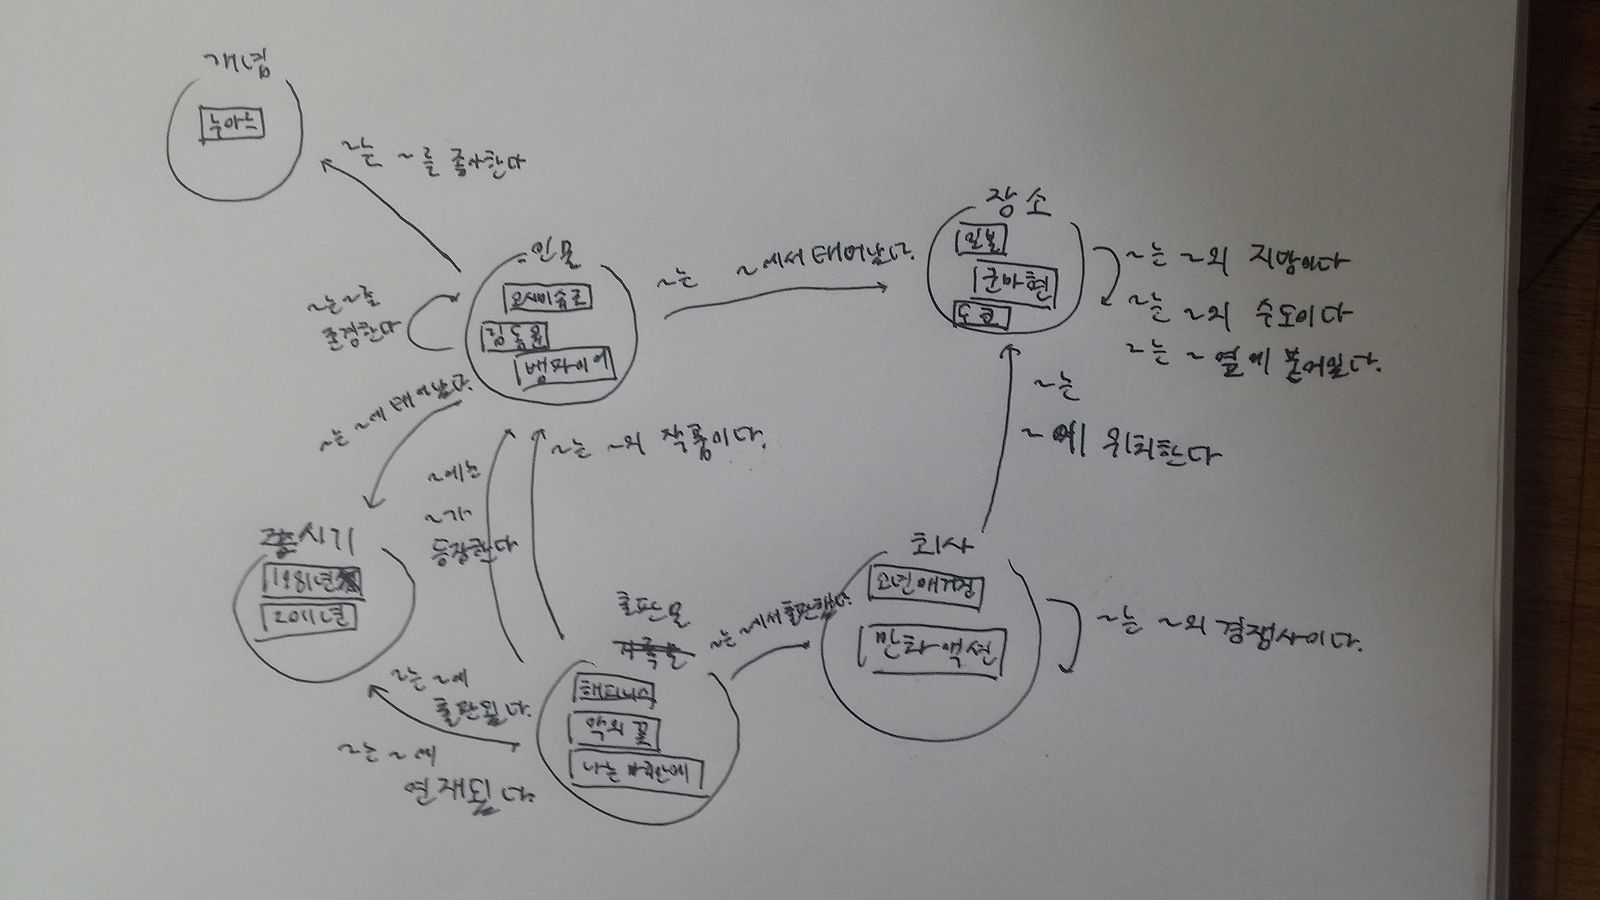 개념
누아르
~는 ~를 좋아한다
인물
오시미슈조
김동율
뱀파이어
~는 ~를
존경한다
~는 ~에서 태어났다.
장소
일본
군마현
도쿄
~는 ~의 지방이다
~는 ~의 수도이다
~는 ~옆에 붙어있다.
~는 ~에 태어났다.
~에는
~가
등장한다
~는 ~의 작품이다.
~는
~에 위치한다
시기
1981년
2011년
출판물
~는 ~에서 출판했다.
회사
소년매거진
만화액션
~는 ~의 경쟁사이다.
~는 ~에
출판됐다.
~는 ~에
연재됐다.
해피니스
악의 꽃
나는 마리안에